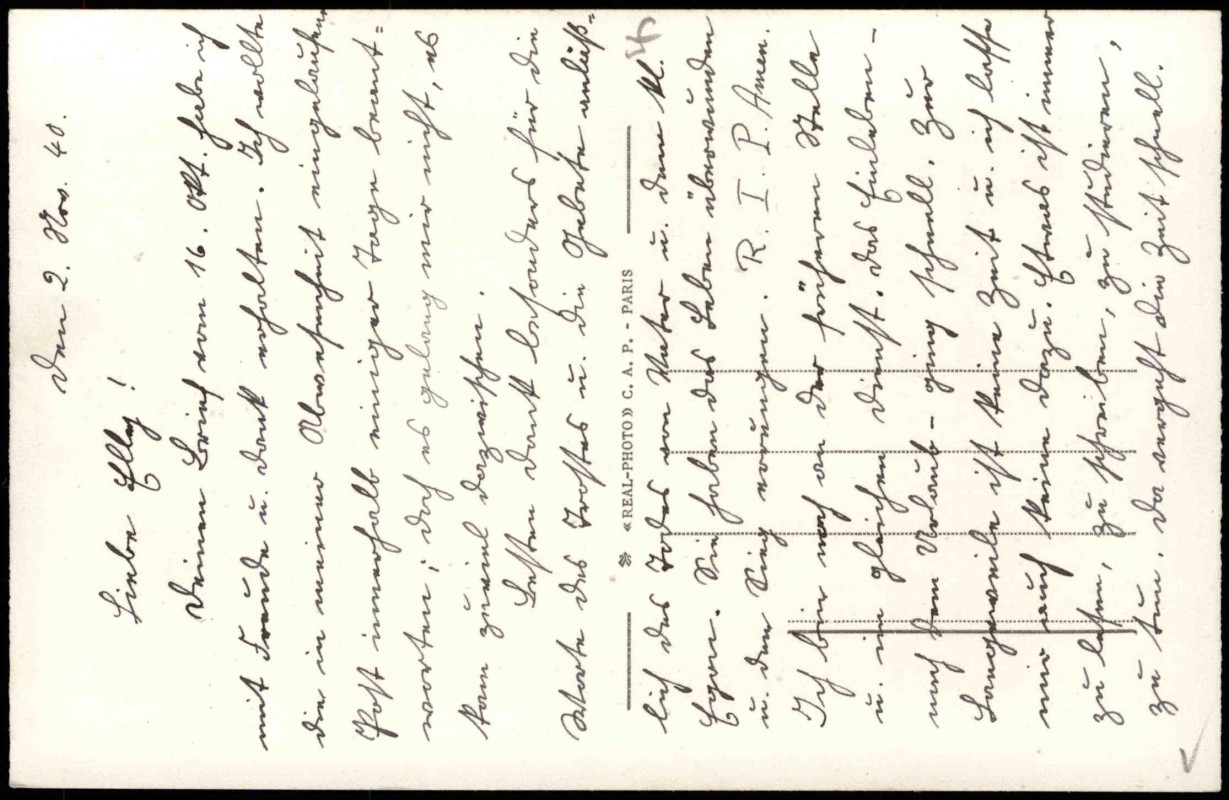 den 2. Nov. 40.
Liebe Elly!
Deinen Brief vom 16. Okt. habe ich
mit Freude u. Dank erhalten. Ich wollte
die in meiner Abwesenheit eingelaufene
Post innerhalb einiger Tage beant=
worten; doch es gelang mir nicht, es
kam zuviel dazwischen.
Besten Dank besonders für die
Worte des Trostes u. die Gebete anläß=
«REAL-PHOTO» C. A. P. - PARIS
lich des Todes von Vater u. dem kl.
Egon. Sie haben das Leben überwunden
u. den Sieg errungen. R. I. P. Amen.
Ich bin noch an der früheren Stelle
u. im gleichen Dienst. Das Einleben -
nach dem Urlaub - ging schnell. Zur
Langeweile ist keine Zeit u. ich lasse
mir auch keine dazu. Etwas ist immer
zu lesen, zu schreiben, zu studieren,
zu tun. Da vergeht die Zeit schnell.